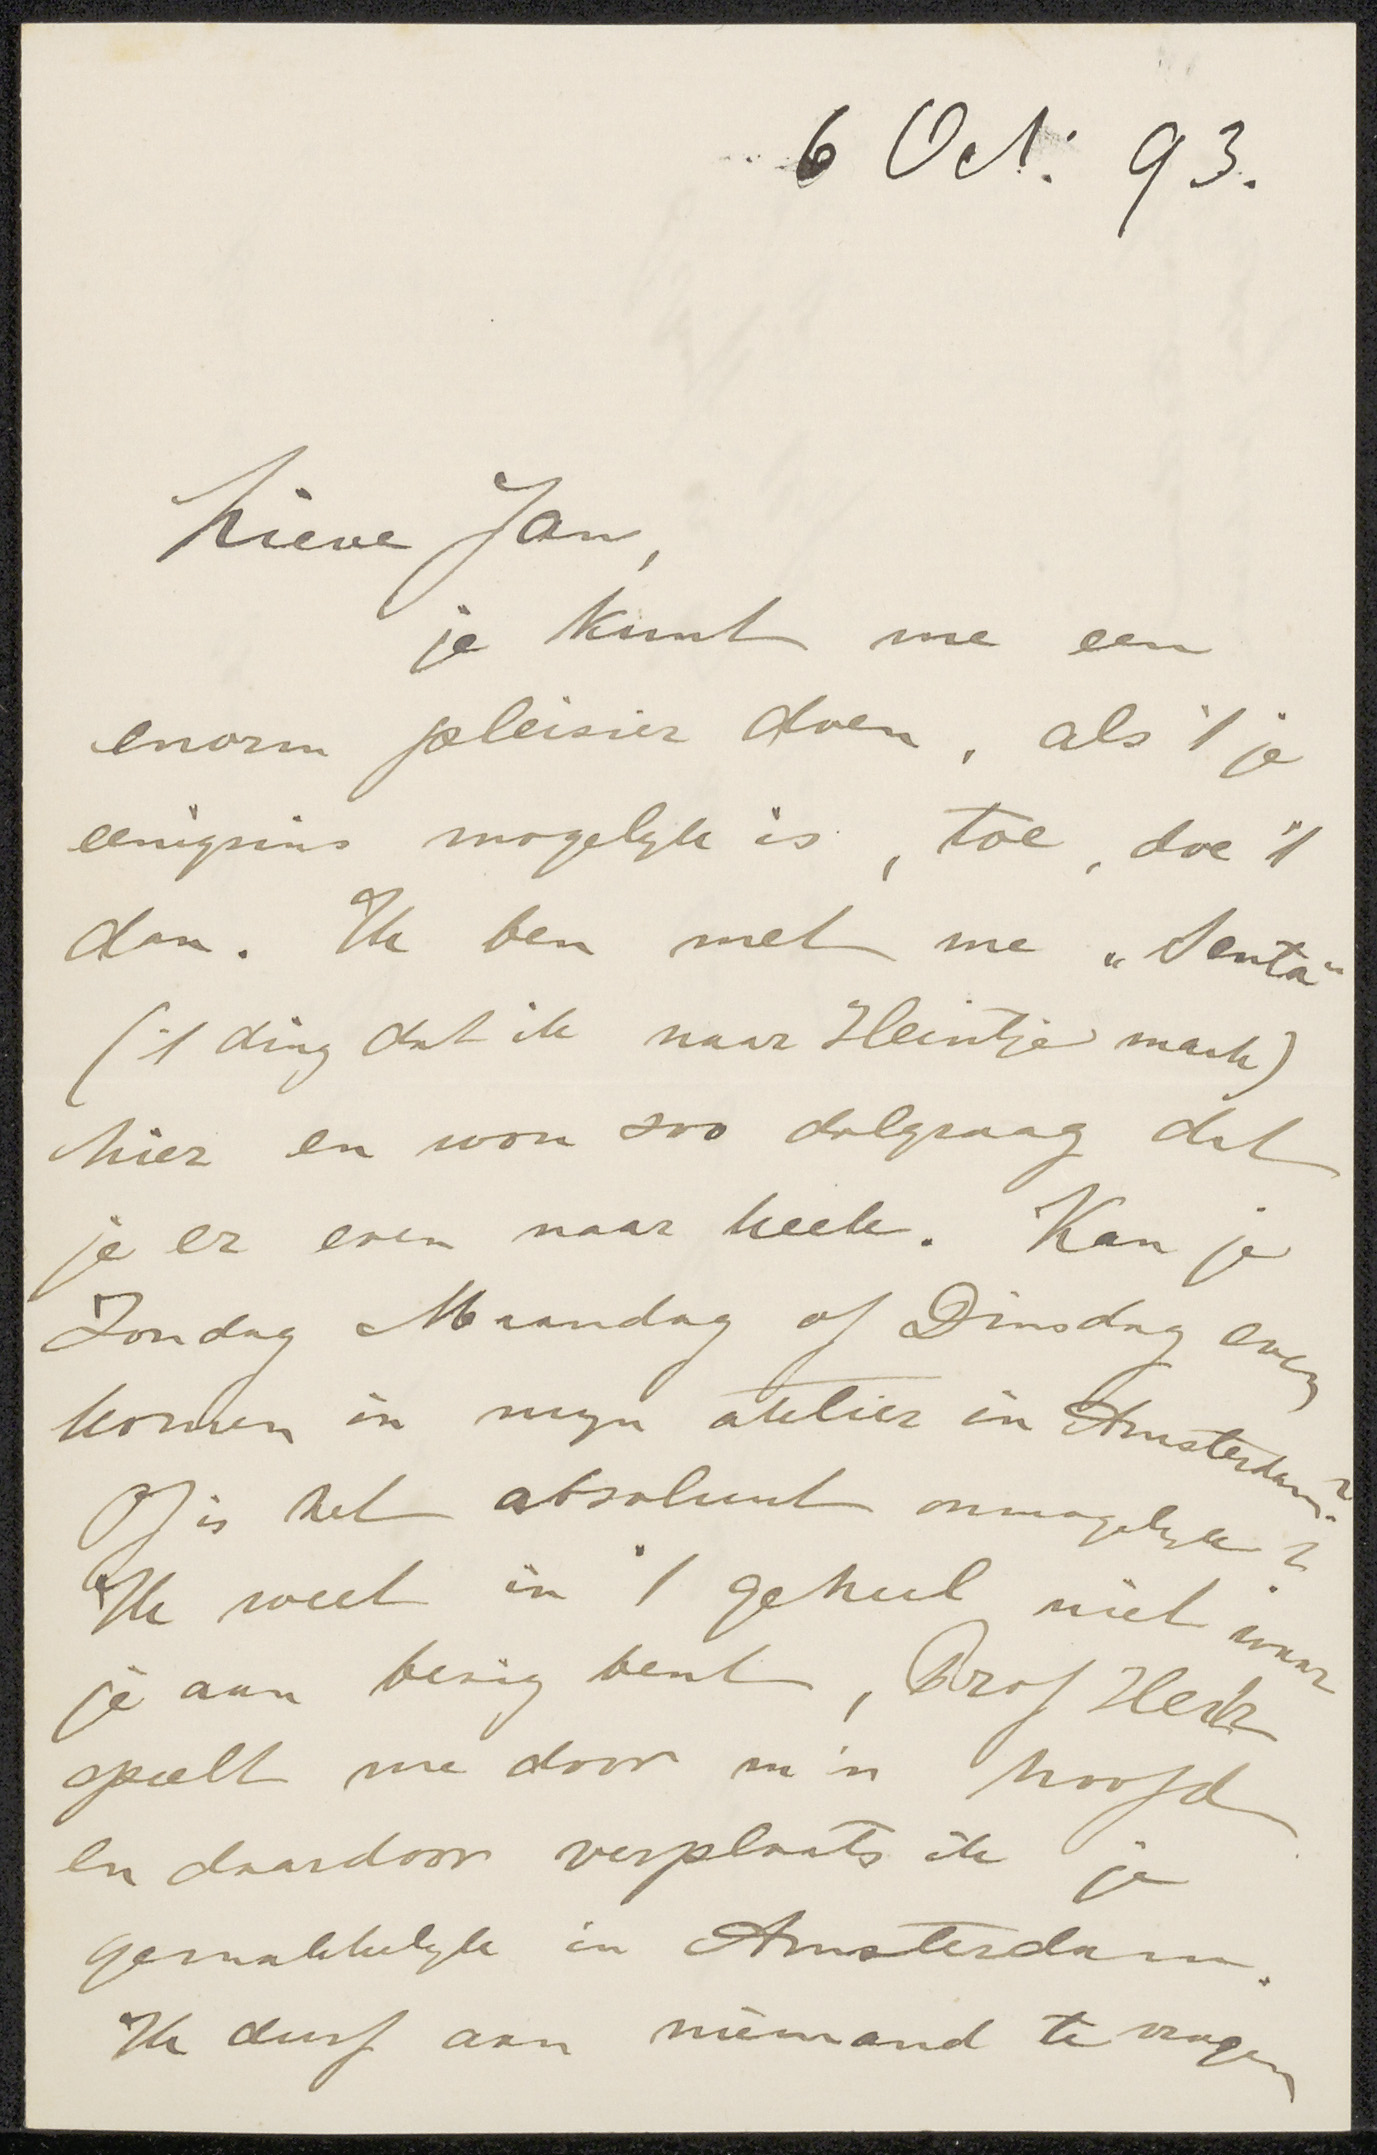 6 Oct. 93.
Lieve Jan,
je kunt me een
enorm pleisier doen, als 't je
eenigsins mogelyk is, toe, doe 't
dan. Ik ben met me „Senta"
('t ding dat ik naar Heintje maak)
hier en wou zoo dolgraag dat
je er even naar keek. Kan je
Zondag Maandag of Dinsdag even
komen in myn atelier in Amsterdam?
Of is het absoluut onmogelyk?
Ik weet in 't geheel niet waar
je aan bezig bent, Prof
speelt me door m'n hoofd
en daardoor verplaats ik je
gemakkelyk in Amsterdam.
Ik durf aan niemand te vragen